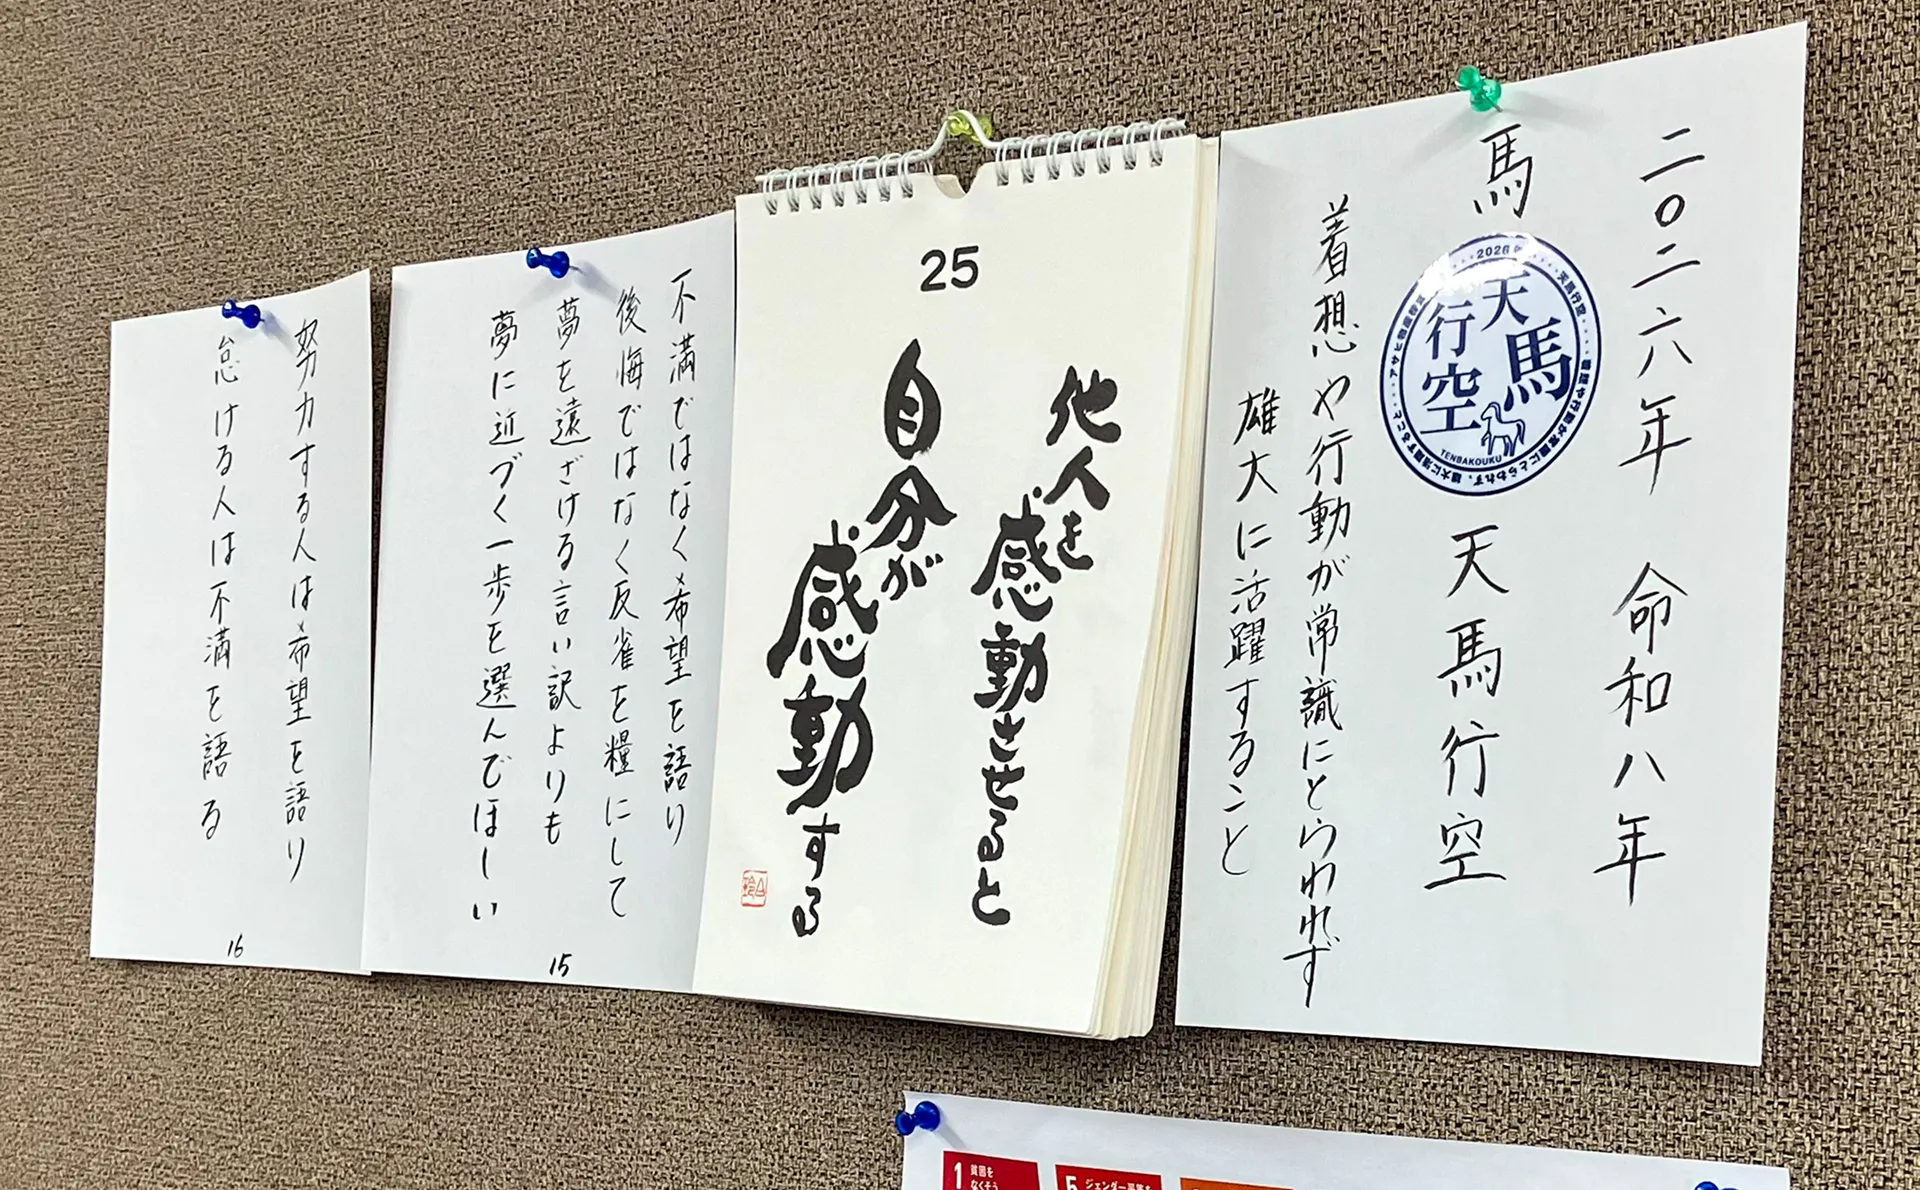 二〇二六年 命和八年
馬 天馬行空
着想や行動が常識にとらわれず
雄大に活躍すること
2026
天馬
行空
TENBAKOUKU
天馬行空
着想や行動が常識にとらわれず、雄大に活躍すること
25
他人を感動させると
自分が感動する
不満ではなく希望を語り
後悔ではなく反雀を糧にして
夢を遠ざける言い訳よりも
夢に近づく一歩を選んでほしい
15
努力する人は希望を語り
怠ける人は不満を語る
16
1 貧困を
なくそう
5 ジェンダー平等を